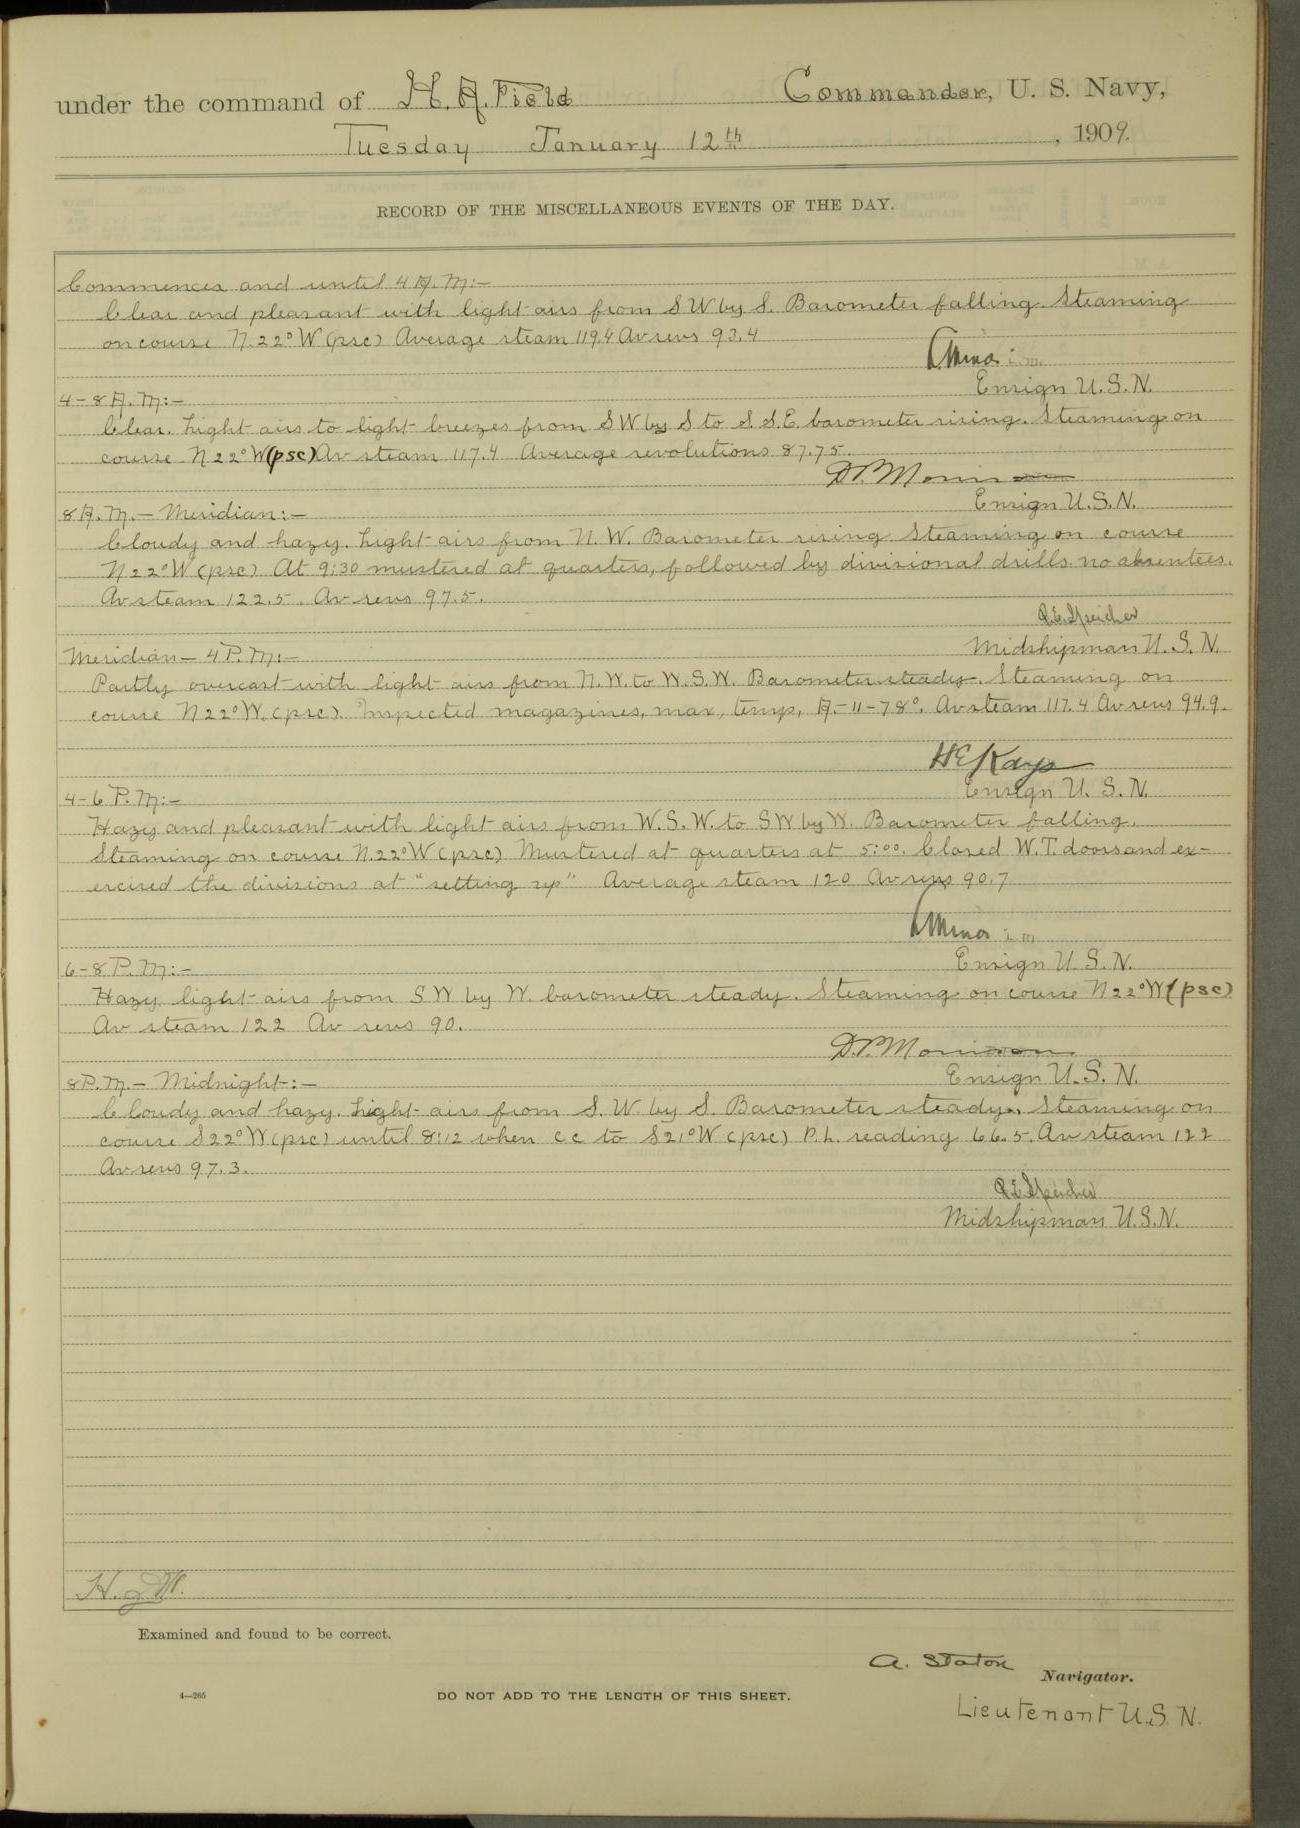 under the command of H. A. Field Commander, U. S. Navy,
Tuesday January 12th, 1909.
RECORD OF THE MISCELLANEOUS EVENTS OF THE DAY.
Commences and until 4 A. M:-
Clear and pleasant with light airs from S W by S. Barometer falling. Steaming
on course N 22° W (psc) Average steam 119.4 Av revs 93.4
Ensign U.S.N.
4-8 A. M:-
Clear. Light airs to light breezes from S W by S to S. S.E. barometer rising. Steaming on
course N 22° W (psc) Av steam 117.4 Average revolutions 87.75.
D.P. Morrison
Ensign U.S.N.
8 A. M. - Meridian:-
Cloudy and hazy. Light airs from N. W. Barometer rising. Steaming on course
N 22° W (psc) At 9:30 mustered at quarters, followed by divisional drills. no absentees.
Av steam 122.5. Av revs 97.5.
R.E. Speicher
Midshipman U. S. N.
Meridian - 4 P. M:-
Partly overcast with light airs from N. W. to W. S. W. Barometer steady. Steaming on
course N 22° W. (psc). Inspected magazines, max, temp, A-11-78°. Av steam 117.4 Av revs 94.9.
H E Kays
Ensign U. S. N.
4-6 P. M:-
Hazy and pleasant with light airs from W. S. W. to S W by W. Barometer falling.
Steaming on course N. 22° W (psc) Mustered at quarters at 5:00. Closed W. T. doors and ex-
ercised the divisions at "setting up" Average steam 120 Av revs 90.7
Ensign U. S. N.
6-8 P. M:-
Hazy light airs from S W by W. barometer steady. Steaming on course N 22° W (psc)
Av steam 122 Av revs 90.
D.P. Morrison
Ensign U. S. N.
8 P. M. - Midnight:-
Cloudy and hazy. Light airs from S. W. by S. Barometer steady. Steaming on
course S 22° W (psc) until 8:12 when c c to S 21° W (psc) P. L. reading 66.5. Av steam 122
Av revs 97.3.
R.E. Speicher
Midshipman U.S.N.
Examined and found to be correct.
A. Staton Navigator.
4—265
DO NOT ADD TO THE LENGTH OF THIS SHEET.
Lieutenant U.S. N.